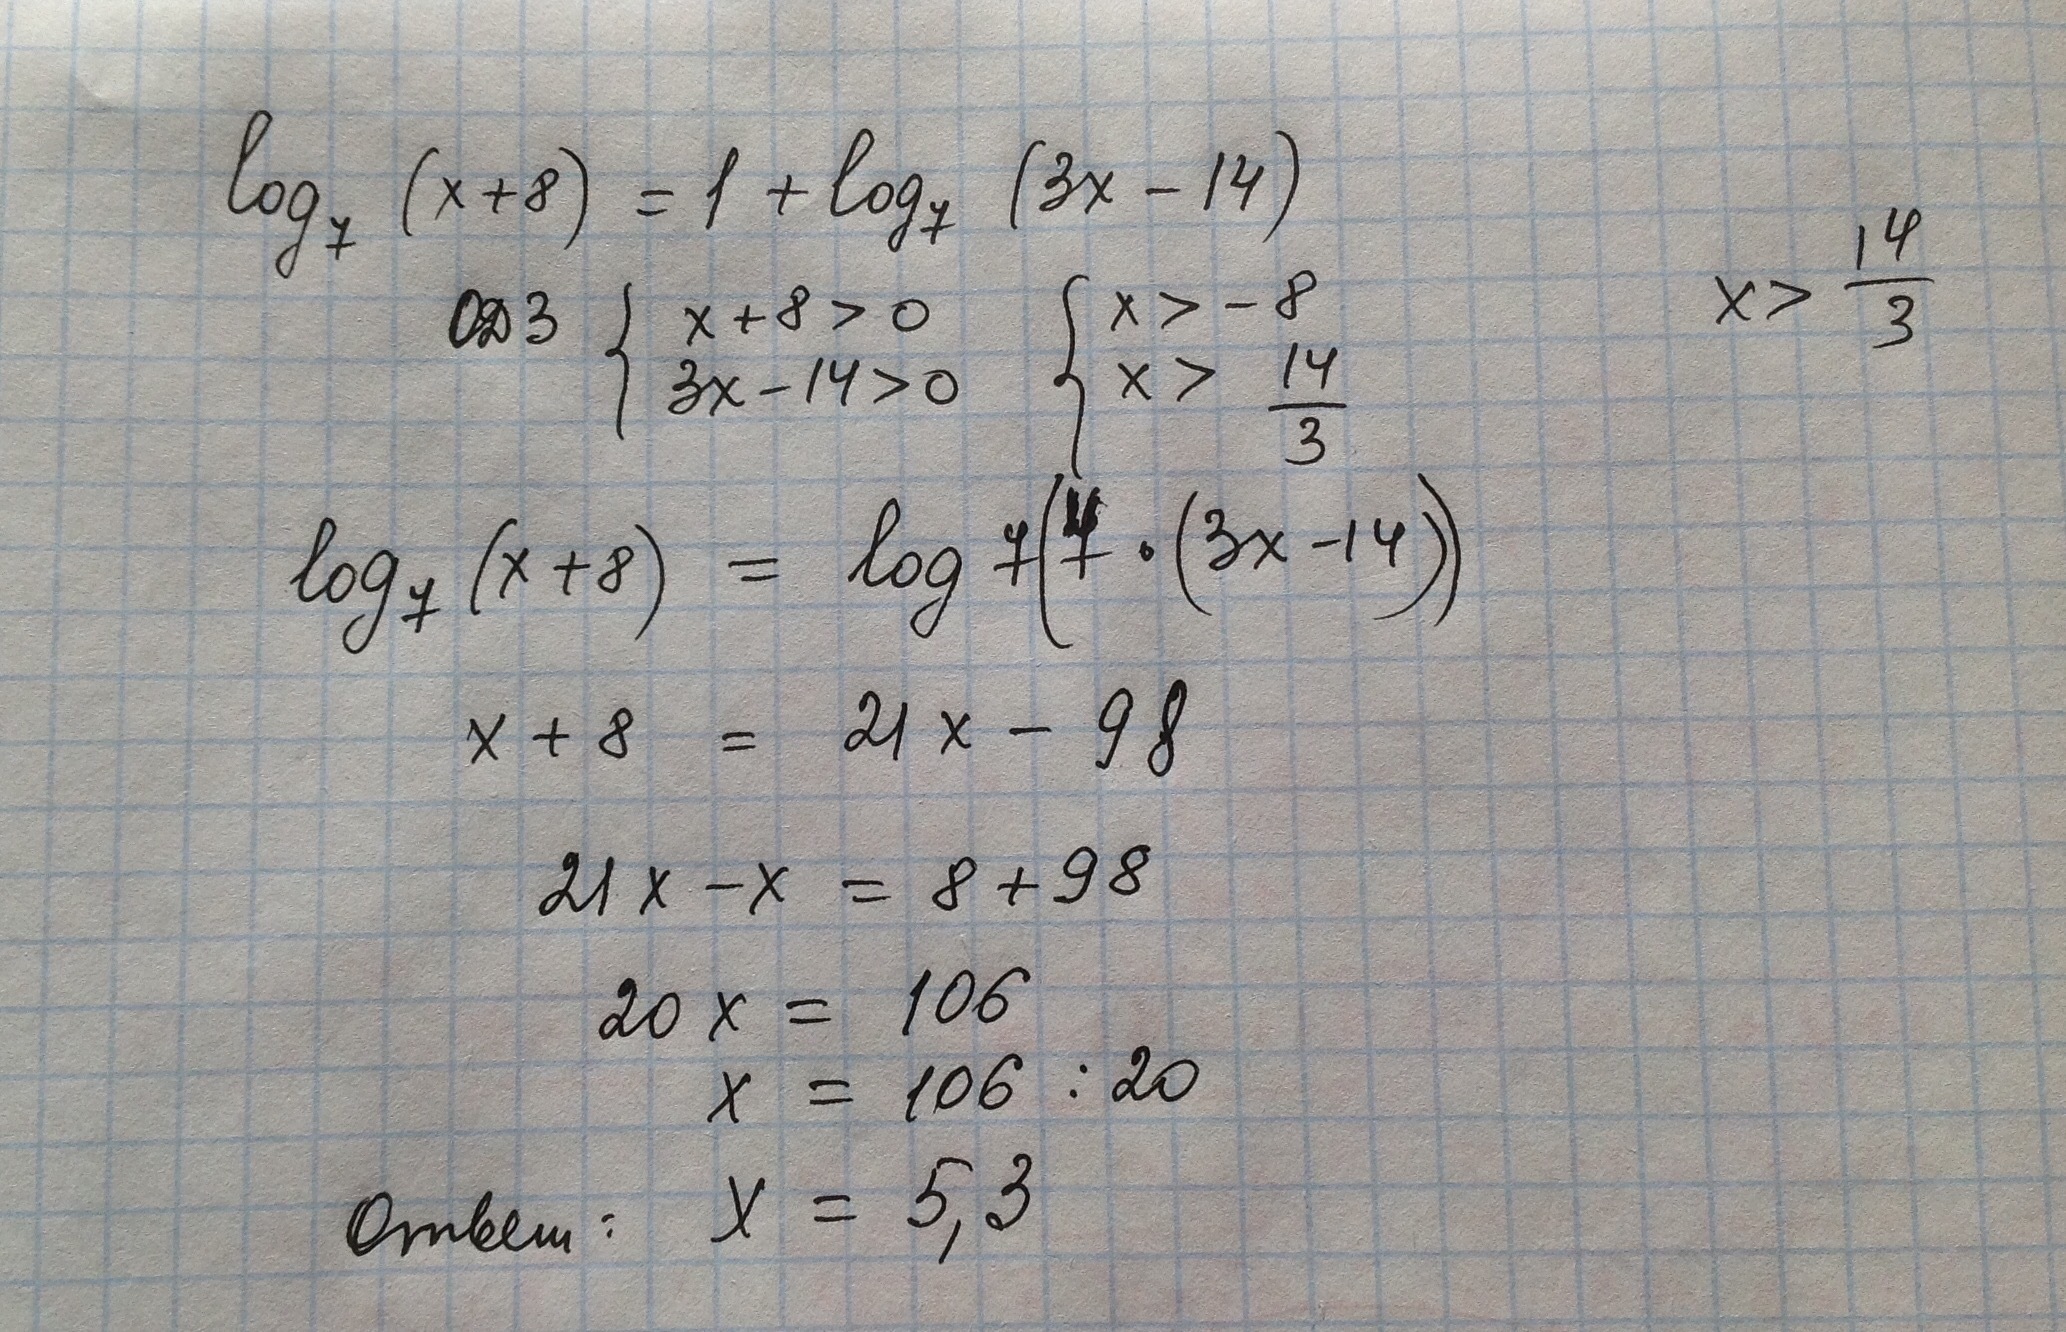 log₇ (x+8) = 1 + log₇ (3x − 14)
ОДЗ { x + 8 > 0 { x > − 8 x > 14/3
3x − 14 > 0 x > 14/3
log₇ (x+8) = log 7(7 · (3x − 14))
x + 8 = 21x − 98
21x − x = 8 + 98
20x = 106
x = 106 : 20
Ответ: x = 5,3